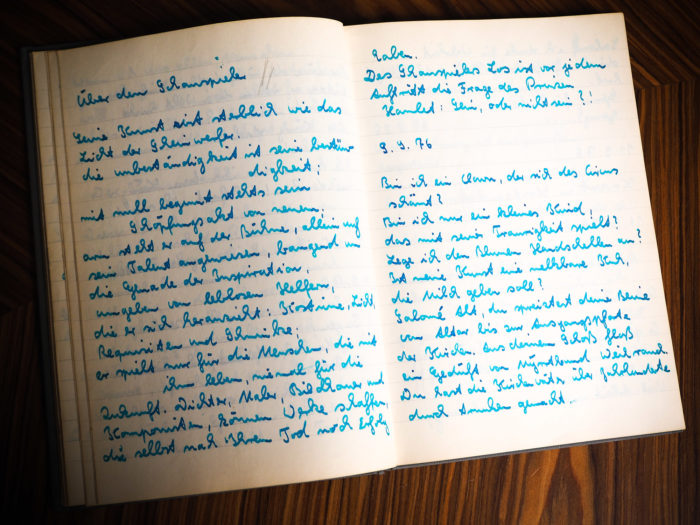 Über den Schauspieler
Seine Kunst ist sterblich wie das
Licht der Scheinwerfer.
die unbeständigkeit ist seine bestän-
digkeit;
mit null beginnt stehts sein
Schöpfungsakt von neuem;
arm steht er auf der Bühne, allein auf
sein Talent angewiesen, bangend um
die Gnade der Inspiration,
umgeben von leblosen Helfern,
die er sich heranzieht: Kostüme, Licht,
Requisiten und Schminke;
er spielt nur für die Menschen, die mit
ihm leben, niemal für die
Zukunft. Dichter, Maler, Bildhauer und
Komponisten, können Werke schaffen,
die selbst nach Ihrem Tod noch Erfolg
haben.
Des Schauspielers Los ist vor jedem
Auftritt die Frage des Prinzen
Hamlet: Sein, oder nicht sein?!
9.9.76
Bin ich ein Clown, der sich des Circus
schämt?
Bin ich nur ein kleines Kind,
das mit seiner Traurigkeit spielt?
Lege ich den Blumen Handschellen an?
Ist meine Kunst eine melkbare Kuh,
die Milch geben soll?
Salomé Alt, du spreiztest deine Beine
vom Altar bis zur Ausgangspforte
der Kirchen. Aus deinem Schoß floß
ein Gedüft von Weihrauch.
Du hast die Kirchenväter über Jahrhunderte
durch trunken gemacht.